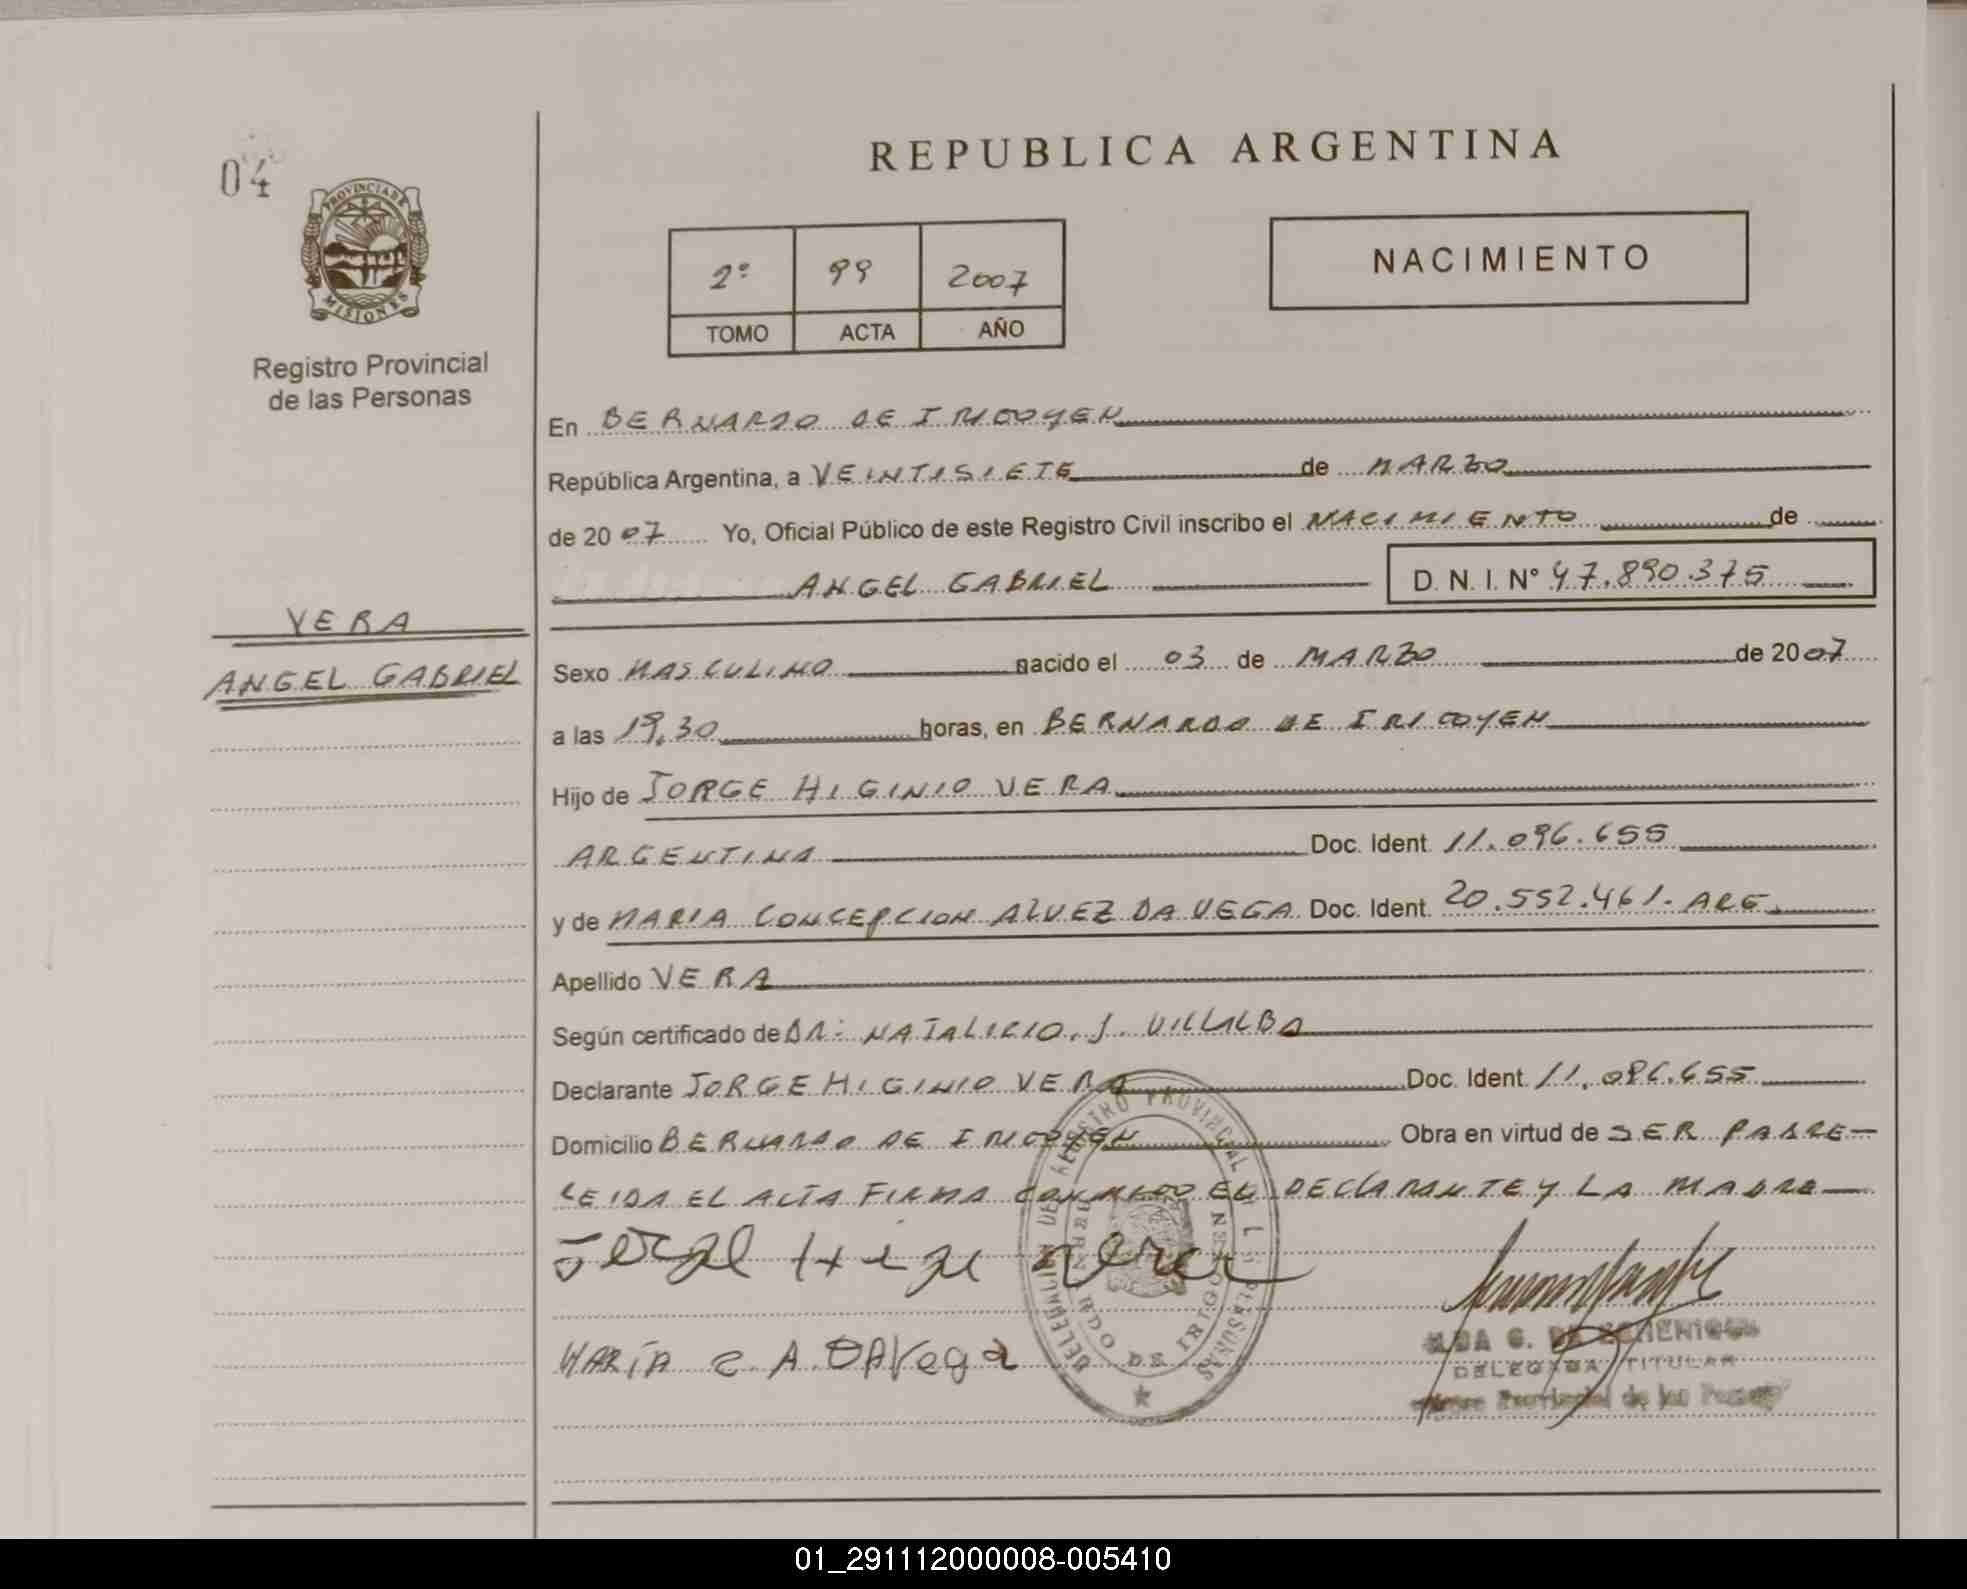 04
PROVINCIA DE
MISIONES
Registro Provincial
de las Personas
VERA
ANGEL GABRIEL
REPUBLICA ARGENTINA
2º 99 2007
TOMO ACTA AÑO
NACIMIENTO
En BERNARDO DE IRIGOYEN
República Argentina, a VEINTISIETE de MARZO
de 2007 Yo, Oficial Público de este Registro Civil inscribo el NACIMIENTO de
ANGEL GABRIEL D. N. I. Nº 47.890.375
Sexo MASCULINO nacido el 03 de MARZO de 2007
a las 19,30 horas, en BERNARDO DE IRIGOYEN
Hijo de JORGE HIGINIO VERA
ARGENTINA Doc. Ident. 11.096.655
y de MARIA CONCEPCION ALVEZ DA VEGA Doc. Ident. 20.552.461. ARG.
Apellido VERA
Según certificado de DR: NATALICIO. J. VILLALBA
Declarante JORGE HIGINIO VERA Doc. Ident. 11.096.655
Domicilio BERNARDO DE IRIGOYEN Obra en virtud de SER PADRE
LEIDA EL ACTA FIRMA CONMIGO EL DECLARANTE Y LA MADRE
MARÍA C. A. DAVega
DELEGACION DEL REGISTRO PROVINCIAL DE LAS PERSONAS
BERNARDO DE IRIGOYEN
DELEGADA TITULAR
Provincial de las Personas
01_291112000008-005410